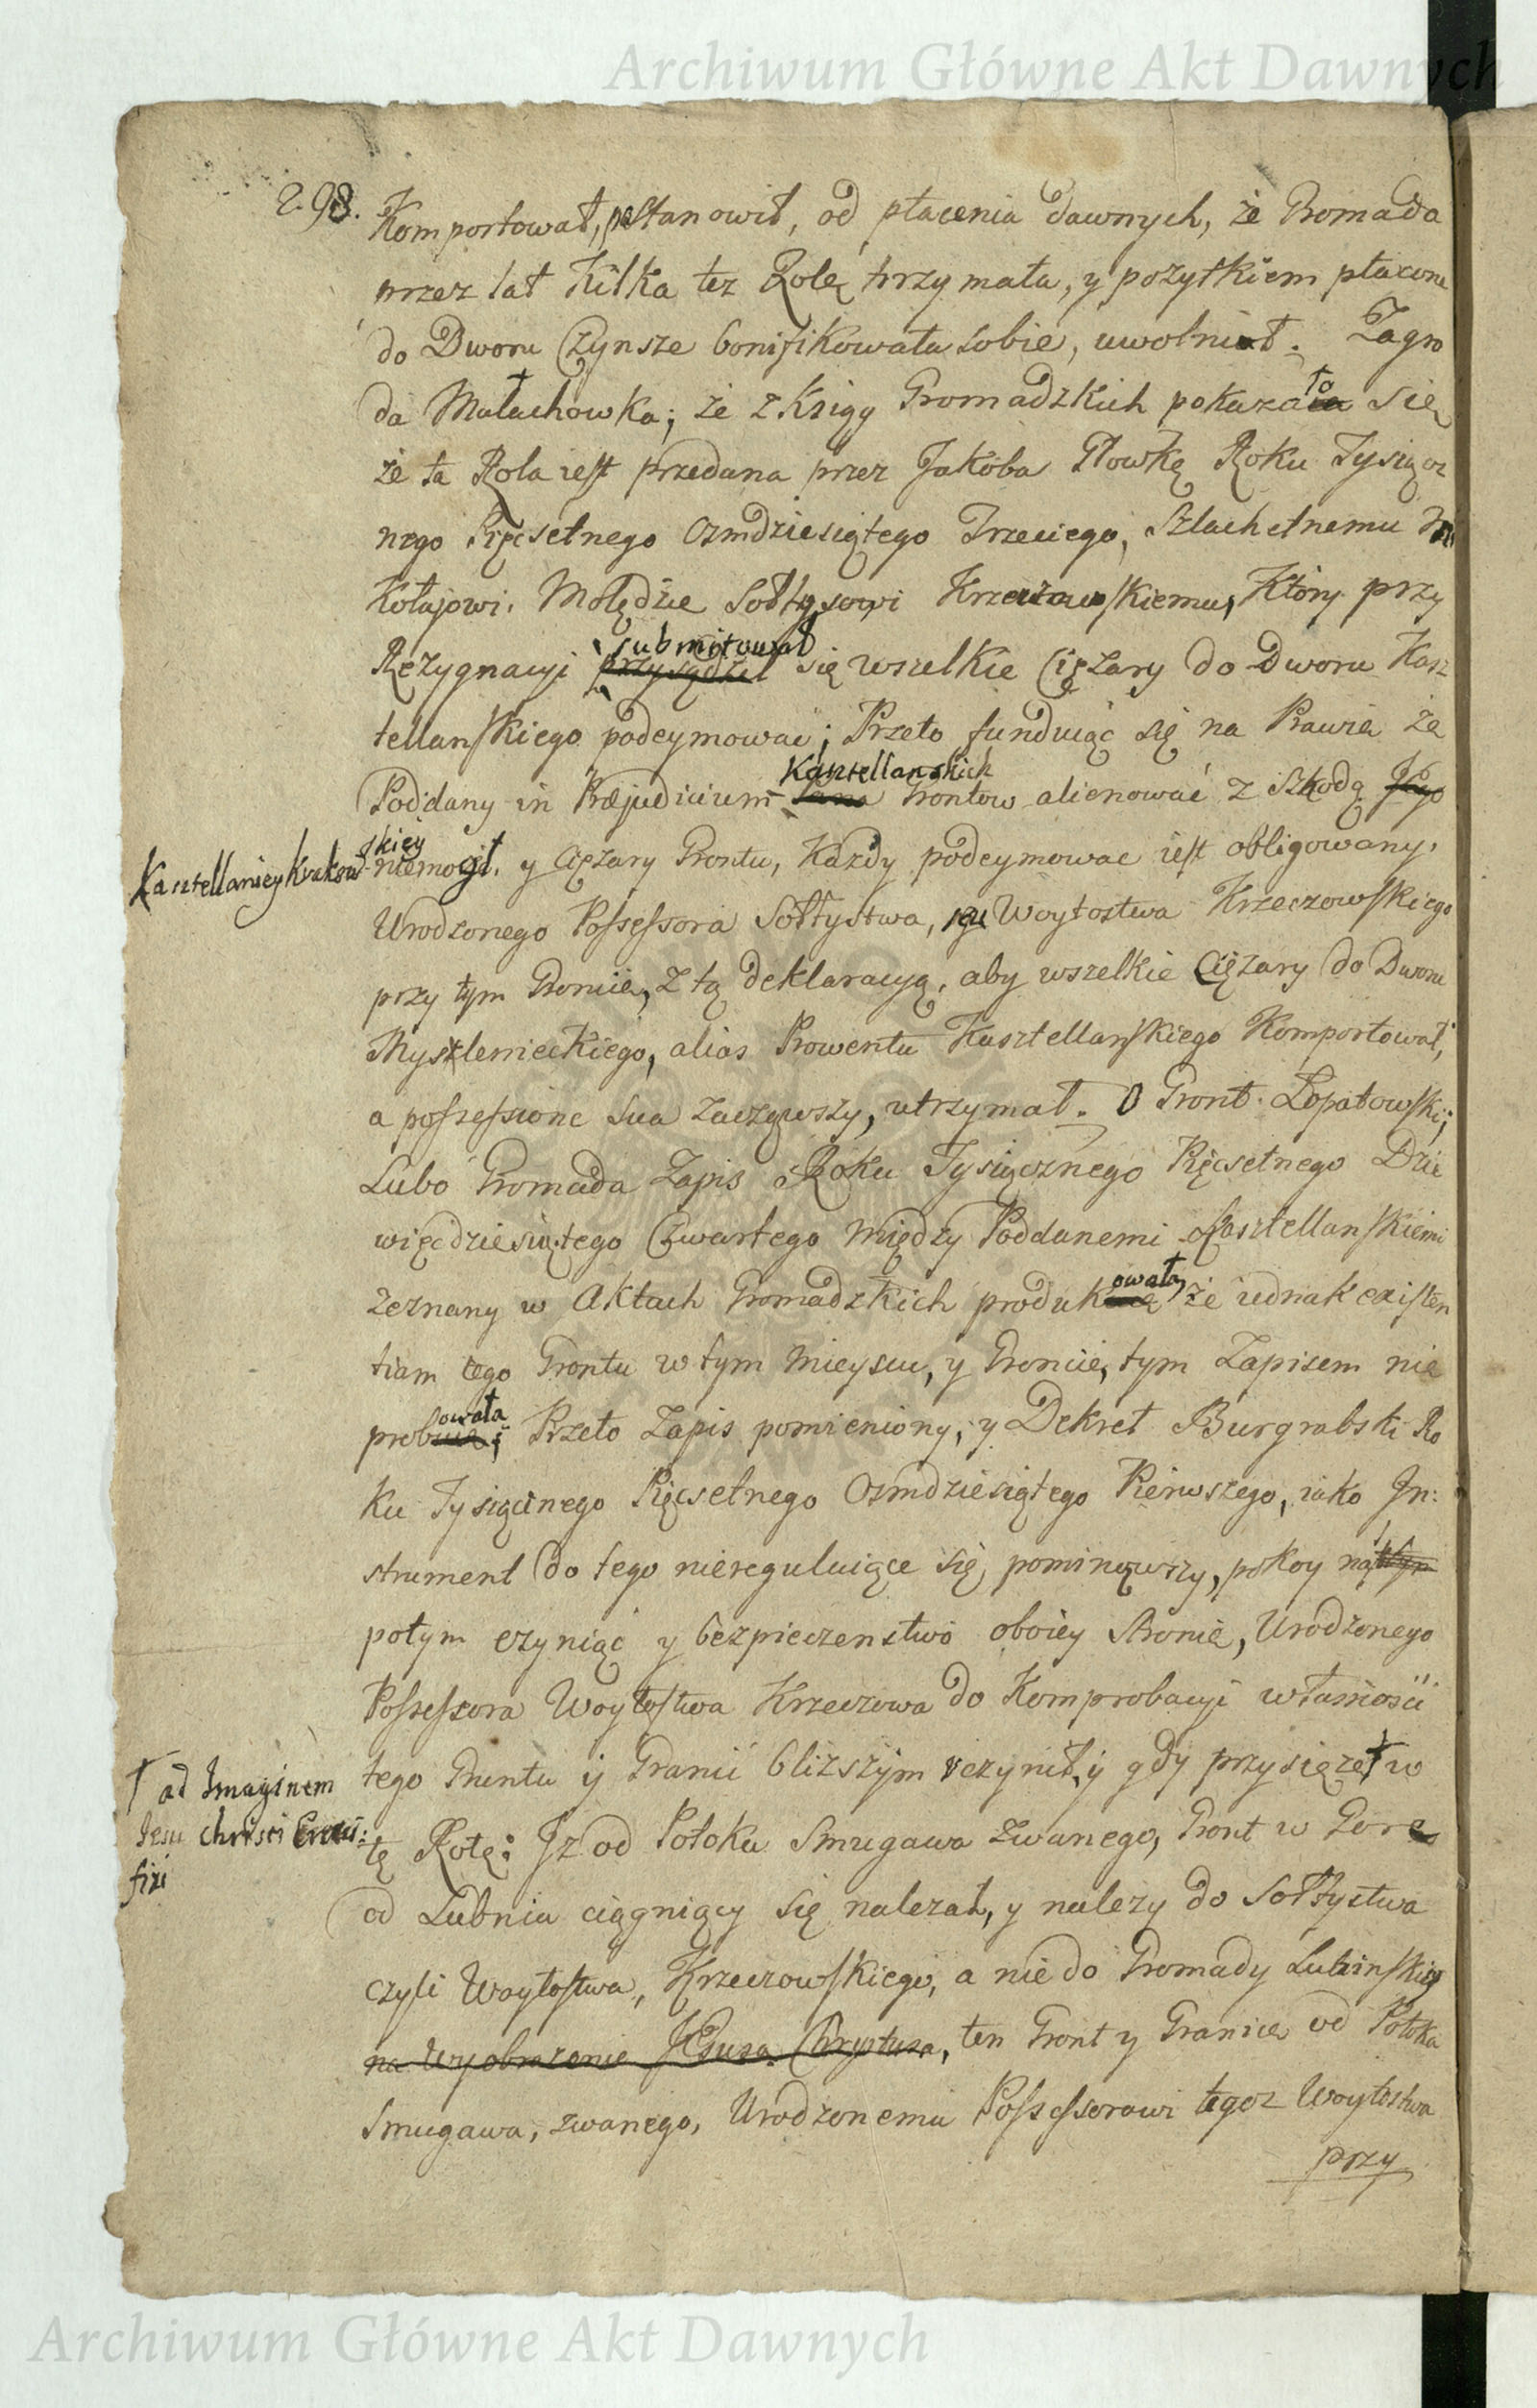 Archiwum Główne Akt Dawnych
298.
Komportował, postanowił, od płacenia dawnych, że Gromada
przez lat Kilka tez Rolę trzymała, y pozytkiem płacone
do Dworu Czynsze bonifikowała sobie, uwolnił. Zagro
da Małachowka; że z Księgy Gromadzkich pokazało się
że ta Rola iest przedana przez Jakóba Głowkę Roku Tysiącz
nego Pięcsetnego Osmdziesiątego Trzeciego, Szlachetnemu Mi
Kołajowi Molędzie Sołtysowi Krzeczowskiemu, Który przy
submitował
Rezygnacyi przysądził się wszelkie Ciężary do Dworu Kasz
tellanskiego podeymować; Przeto funduiąc się na Prawie że
Kasztellanskich
Poddany in Præjudicium Pana Grontow alienować z Szkodą Jego
Kasztellaniey Krakow
skiey
niemogł, y Ciężary Grontu, Kazdy podeymowac iest obligowany,
Urodzonego Possessora Sołtystwa, Woytostwa Krzeczowskiego
przy tym Groncie, z tą deklaracyą, aby wszelkie Ciężary do Dworu
Myslenieckiego, alias Prowentu Kasztellanskiego Komportował,
a possessione sua zacząwszy, utrzymał. O Gront Łopatowski;
Lubo Gromada Zapis Roku Tysiącznego Pięcsetnego Dzie
więcdziesiątego Czwartego między Poddanemi Kasztellanskiemi
owała,
zeznany w Aktach Gromadzkich produk że iednak existen
tiam tego Grontu w tym mieyscu, y Groncie, tym Zapisem nie
owała
prob; Przeto Zapis pomieniony, y Dekret Burgrabski Ro
Ku Tysiącznego Pięcsetnego Osmdziesiątego Pierwszego, iako In:
strument do tego niereguluiące się, pominąwszy, pokoy na
potym czyniąc y bezpieczenstwo oboiey stronie, Urodzonego
Possessora Woytostwa Krzeczowa do Komprobacyi własnosci
tego Gruntu y Granic blizszym uczynił, y gdy przysięże w
ad Imaginem
Jesu christi Cruci:
fixi
tę Rotę: Iz od Potoku Smugawa zwanego, Gront w Gore
od Lubnia ciągniący się nalezał, y nalezy do Sołtystwa
czyli Woytostwa, Krzeczowskiego, a nie do Gromady Lubinskiey
na Wyobrazenie JEsusa Chrystusa, ten Gront y Granice od Potoka
Smugawa, zwanego, Urodzonemu Possessorowi tegoz Woytostwa
przy
Archiwum Główne Akt Dawnych